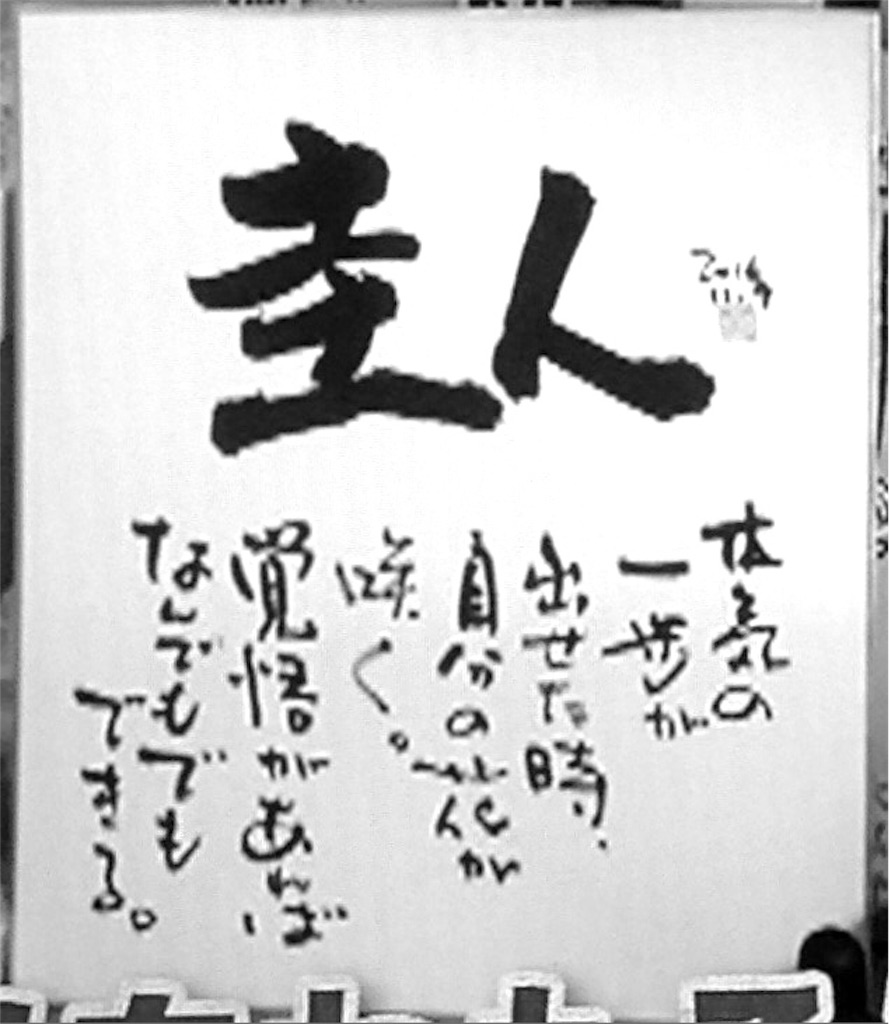 圭人
2016
11.9
本気の
一歩が
出せた時、
自分の花が
咲く。
覚悟があれば
なんでもでも
できる。